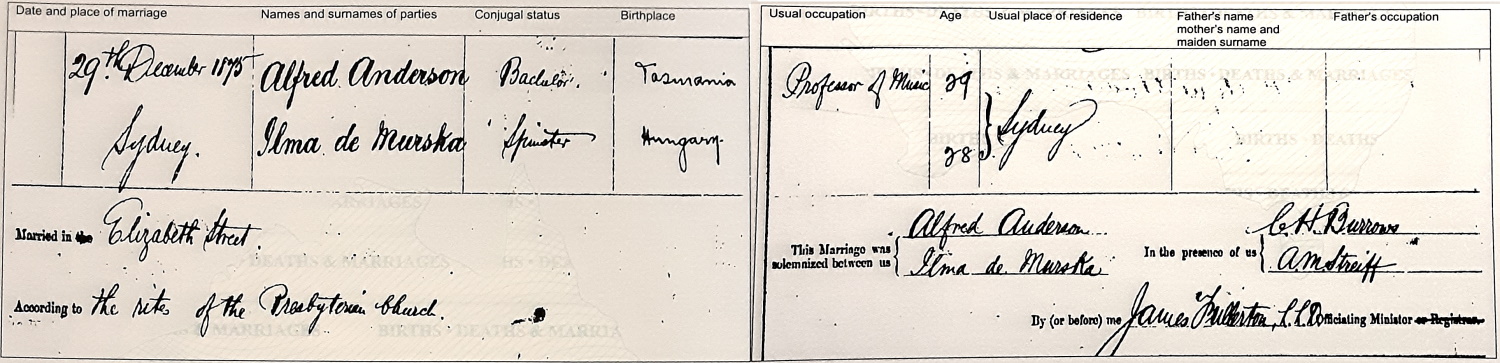 Date and place of marriage Names and surnames of parties Conjugal status Birthplace
29th December 1875 Alfred Anderson Bachelor. Tasmania
Sydney. Ilma de Murska Spinster Hungary.
Married in the Elizabeth Street.
According to the rites of the Presbyterian Church.
Usual occupation Age Usual place of residence Father's name Father's occupation
mother's name and
maiden surname
Professor of Music 29
Sydney
28
This Marriage was solemnized between us
Alfred Anderson
Ilma de Murska
In the presence of us
C. H. Burrows
A M Streiff
By (or before) me James Fullerton, L.L.D Officiating Minister or Registrar.
BIRTHS · DEATHS & MARRIAGES